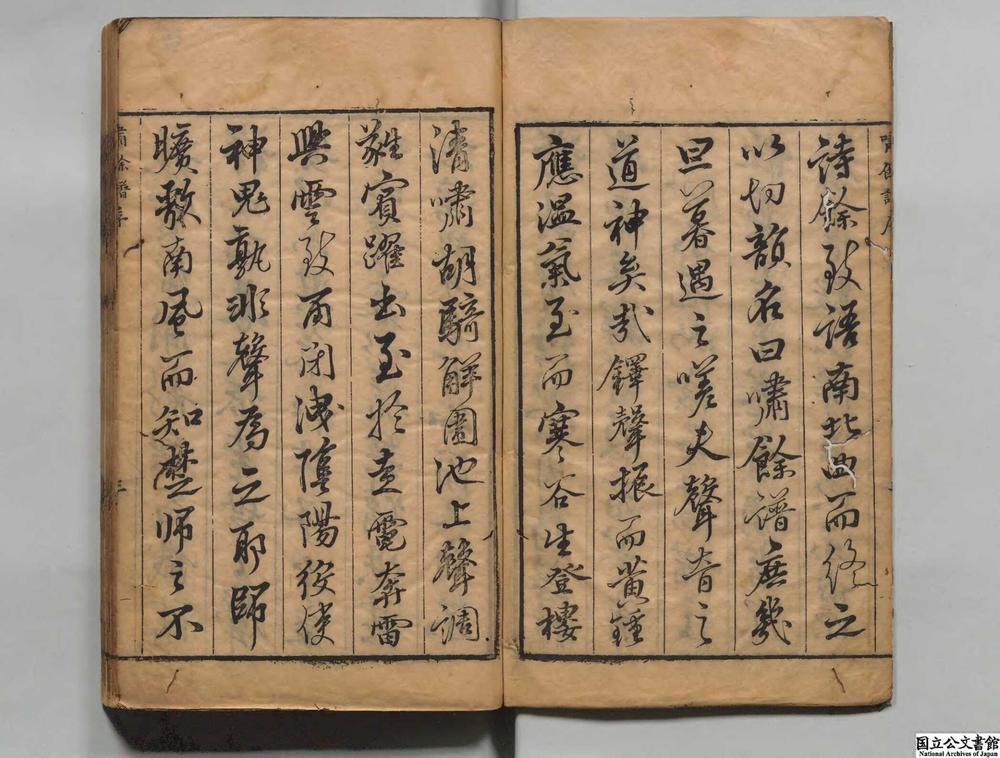 詩餘致語南北曲而終之
以切韻名曰嘯餘譜庶幾
旦暮遇之嗟夫聲音之
道神矣哉鐸聲振而黄鍾
應溫氣至而寒谷生登樓
清嘯胡騎解圍池上聲調
蕤賓躍出至於走電奔雷
興雲致雨闭洩陰陽役使
神鬼孰非聲為之耶師
曠歌南風而知楚师之不
嘯餘譜序
三
国立公文書館
National Archives of Japan